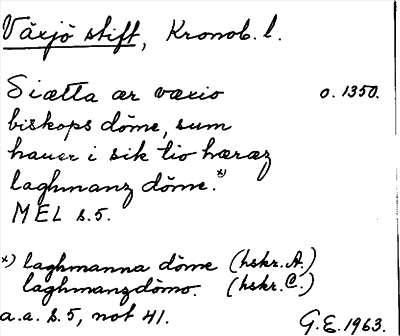 Växjö stift, Kronob. l.
Siætta ær væxio o. 1350.
biskops döme, sum
hauer i sik tio hæraz
laghmanz döme.*)
MEL s. 5.
*) laghmanna döme (hskr. A.)
laghmanzdömo. (hskr. C.)
a.a. s. 5, not 41. G.E. 1963.